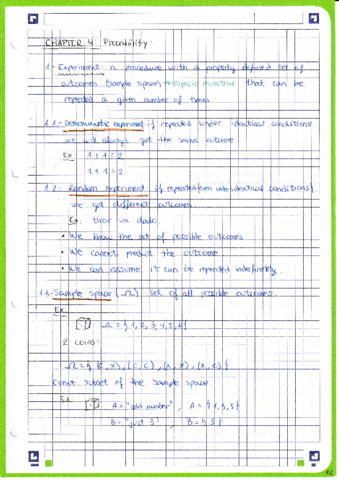 CHAPTER 4: Probability
1- Experiment: a procedure with a properly defined set of
outcomes (sample space) → espacio muestral that can be
repeated a given number of times.
1.1- Deterministic experiment: if repeated under identical conditions
we will always get the same outcome
Ex: 1+1=2
1+1=2
1.2- Random experiment: if repeated (even into identical conditions)
we get different outcomes.
Ex: tirar un dado.
• We know the set of possible outcomes
• We cannot predict the outcome
• We can assume it can be repeated indefinitely.
1.3- Sample space (Ω) set of all possible outcomes.
Ex:
Ω={1,2,3,4,5,6}
2 coins:
Ω={(c,x),(c,c),(x,x),(x,c)}
Event: subset of the sample space
Ex: A="odd number", A={1,3,5}
B="just 3", B={3}